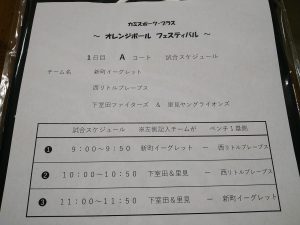 カミスポーツ・プラス
～ オレンジボール フェスティバル ～
1日目 A コート 試合スケジュール
チーム名 新町イーグレット
西リトルブレーブス
下室田ファイターズ & 里見ヤングライオンズ
試合スケジュール ※左側記入チームが ベンチ1塁側
❶ 9:00～9:50 新町イーグレット ー 西リトルブレーブス
❷ 10:00～10:50 下室田&里見 ー 西リトルブレーブス
❸ 11:00～11:50 下室田&里見 ー 新町イーグレット